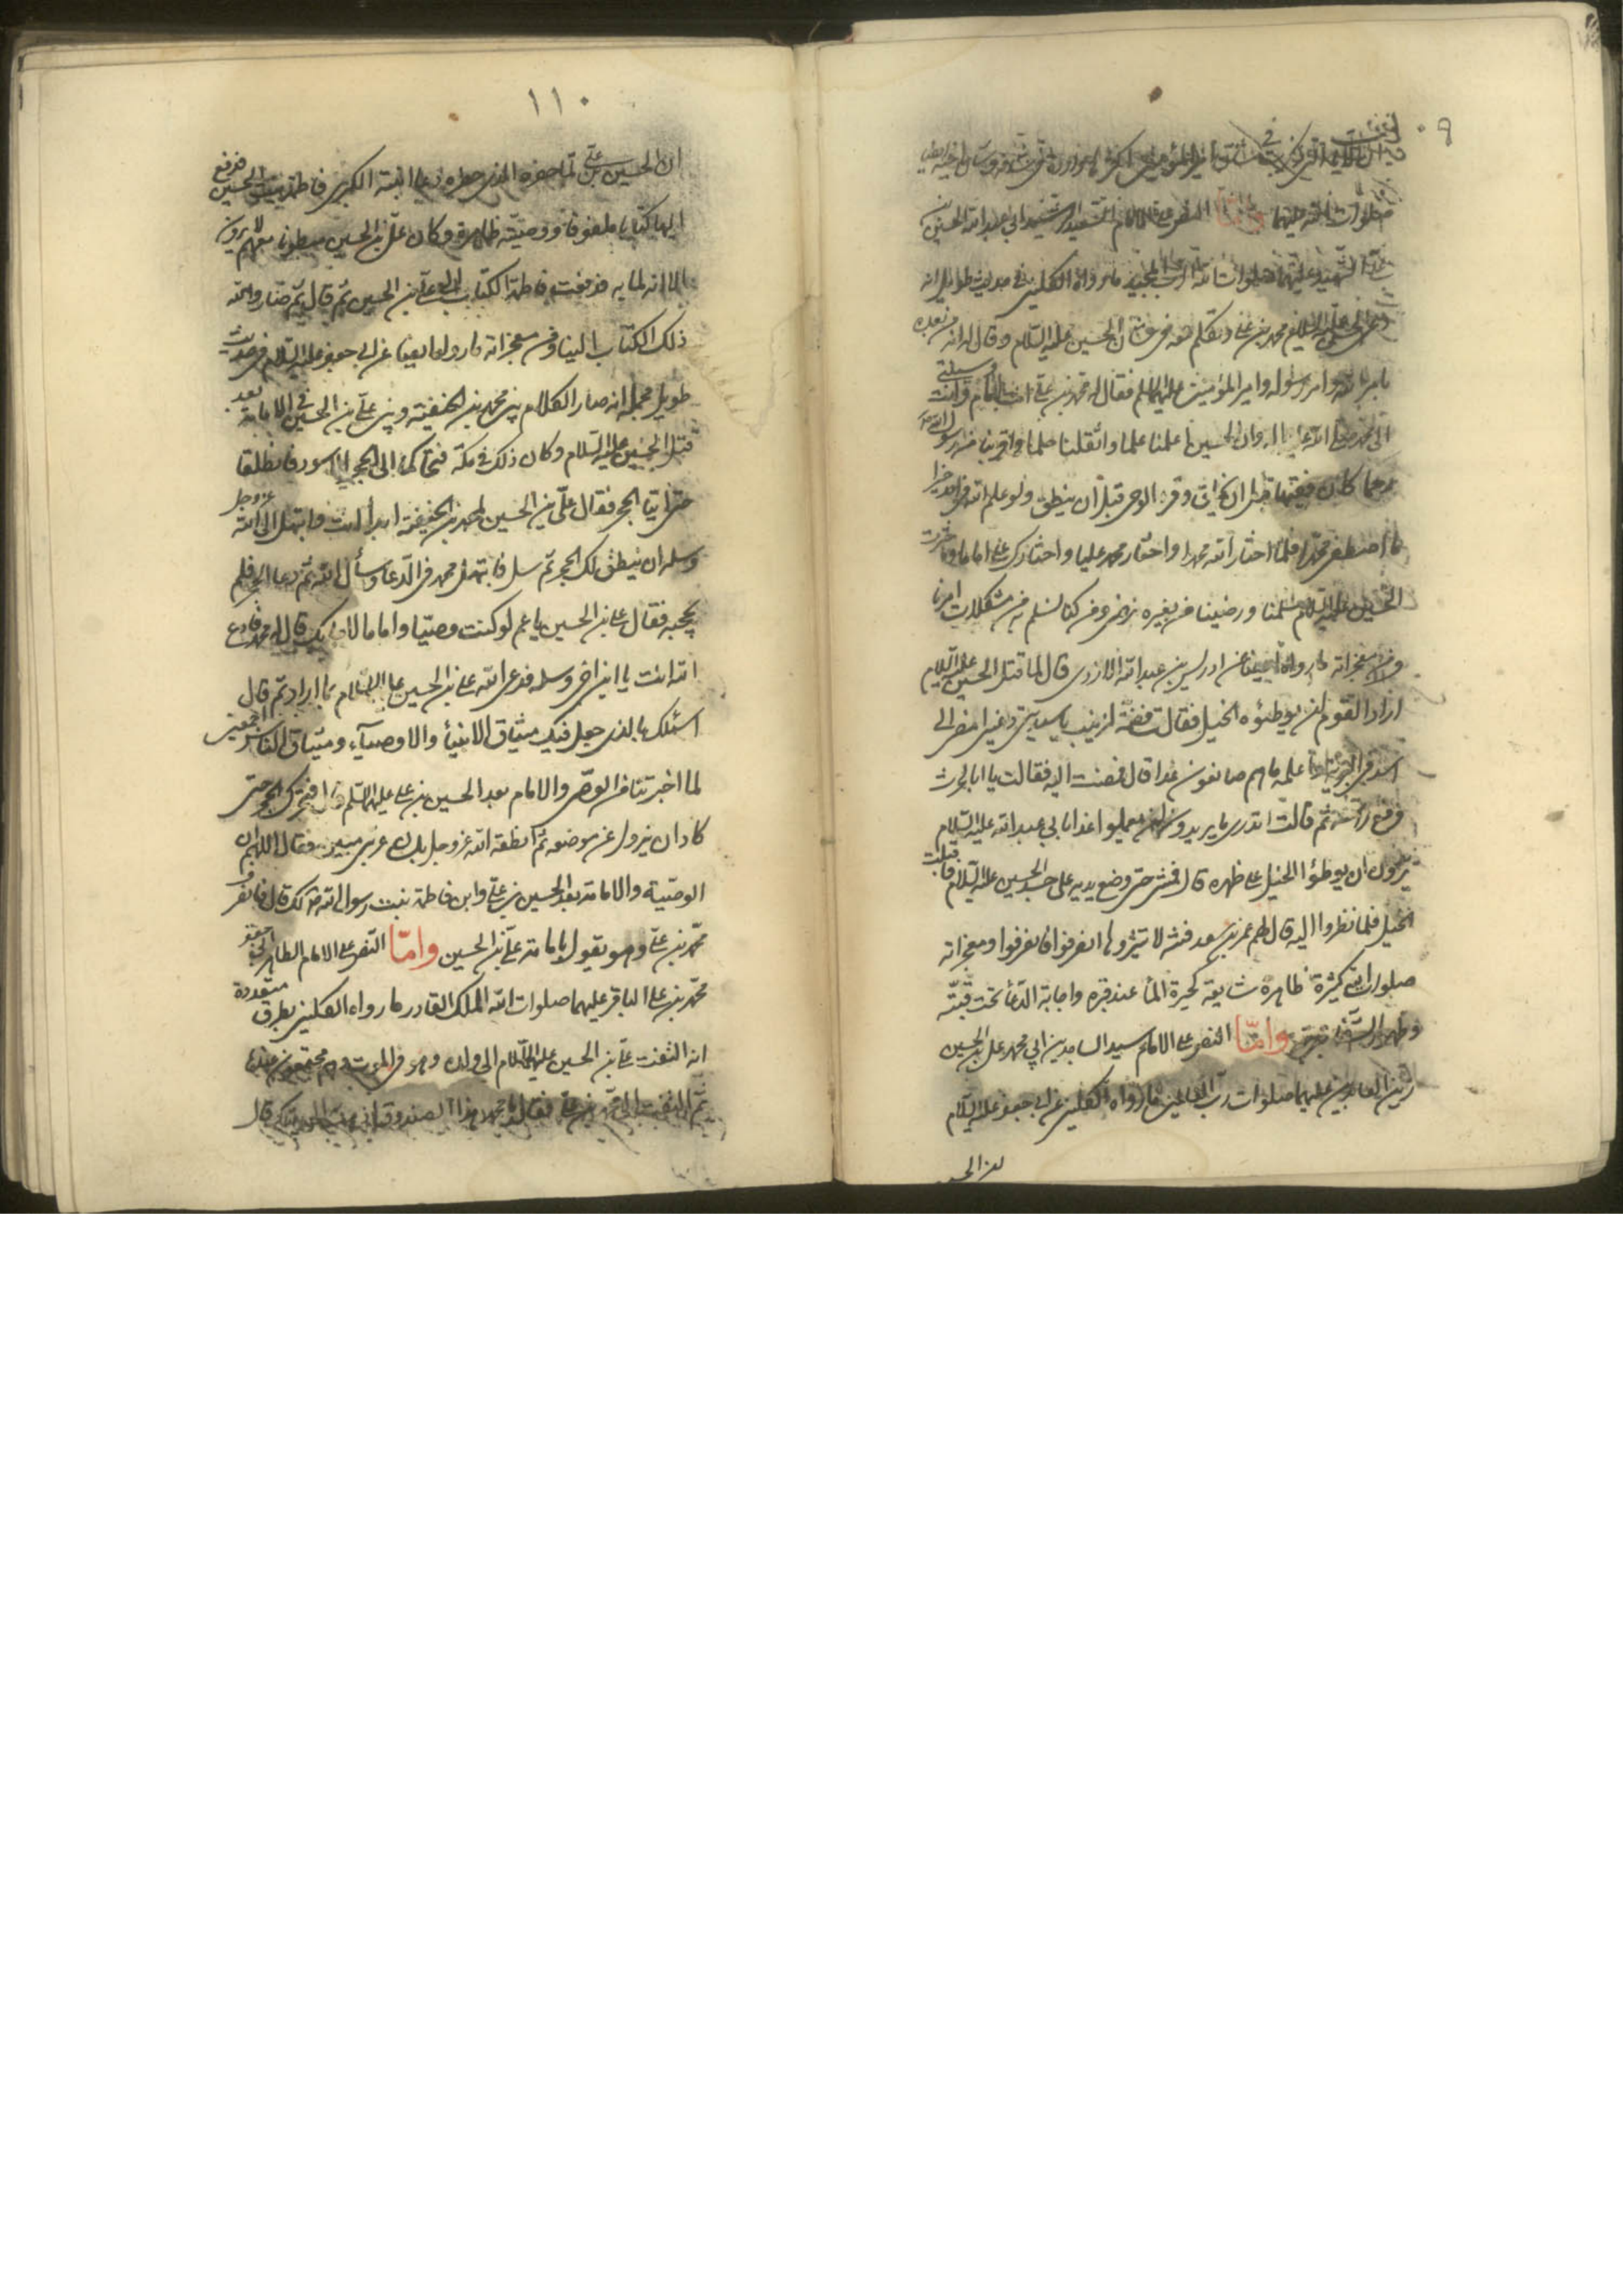 صلوات الله عليهما وامّا النص على الامام السعيد الشهيد ابي عبد الله الحسين بن
علي الشهيد عليهما صلوات الله المجيد ما رواه الكليني في حديث طويل انه
محمد بن علي وتكلم معه في شان الحسين عليه السلام وقال له انه من بعده
بامر الله وامر رسوله وامير المؤمنين عليهم السلم فقال له محمد بن علي انت الامام وانت وسيلتي
الى محمد صلى الله عليه واله وان الحسين اعلمنا علما واثقلنا حلما واقربنا من رسول الله
رحما كان فقيها قبل ان يخلق وقرء الوحى قبل ان ينطق ولو علم الله في احد خيرا
ما اصطفى محمدا فلما اختار الله محمدا واختار محمد عليا واختارك على اماما واخترت
الحسين عليه السلام سلمنا ورضينا من بغيره يرضى ومن كنا نسلم به من مشكلات امرنا
ومن معجزاته ما رواه ايضا عن ادريس بن عبد الله الازدى قال لما قتل الحسين عليه السلام
اراد القوم ان يوطئوه الخيل فقالت فضة لزينب يا سيدتي دعيني امضى الى
اسد في علمه ما هم صانعون غدا قال فمضت اليه فقالت يا ابا الحرث
فرفع راسه ثم قالت اتدرى ما يريدون ان يعملوا غدا بابي عبد الله عليه السلام
يريدون ان يوطئوا الخيل على ظهره قال فمشى حتى وضع يديه على جسد الحسين عليه السلام فاقبلت
الخيل فلما نظروا اليه قال لهم عمر بن سعد فتنة لا تثيروها انصرفوا فانصرفوا ومعجزاته
صلوات الله كثيرة ظاهرة شايعة كحيرة الماء عند قبره واجابة الدعاء تحت قبته
وظهور الشفاء وامّا النص على الامام سيد الساجدين ابي محمد علي بن الحسين
زين العابدين عليهما صلوات رب العالمين ما رواه الكليني عن ابي جعفر عليه السلام
١١٠
ان الحسين بن علي لما حضره الذى حضره دعا ابنته الكبرى فاطمة بنت الحسين فدفع
اليها كتابا ملفوفا ووصية ظاهرة وكان علي بن الحسين مبطونا معهم لا يرون
الا انه لما به فدفعت فاطمة الكتاب الى علي بن الحسين ثم قال ثم صار والله
ذلك الكتاب الينا ومن معجزاته ما رواه ايضا عن ابي جعفر عليه السلام في حديث
طويل مجمله انه صار الكلام بين محمد بن الحنفية وبين علي بن الحسين في الامامة بعد
قتل الحسين عليه السلام وكان ذلك في مكة فتحاكما الى الحجر الاسود فانطلقا
حتى اتيا الحجر فقال علي بن الحسين لمحمد بن الحنفية ابدأ انت فابتهل الى الله عز وجل
وسله ان ينطق لك الحجر ثم سل فابتهل محمد في الدعا وسأل الله ثم دعا الحجر فلم
يجبه فقال علي بن الحسين يا عم لو كنت وصيا واماما لاجابك قال له محمد فادع
الله انت يا ابن اخي وسله فدعى الله علي بن الحسين عليه السلام بما اراد ثم قال
اسئلك بالذى جعل فيك ميثاق الانبياء والاوصياء وميثاق الناس اجمعين
لما اخبرتنا من الوصى والامام بعد الحسين بن علي عليهما السلم قال فتحرك الحجر حتى
كاد ان يزول عن موضعه ثم انطقه الله عز وجل بلسان عربى مبين فقال اللهم ان
الوصية والامامة بعد الحسين بن علي وابن فاطمة بنت رسول الله لك قال فانصرف
محمد بن علي وهو يقول بامامة علي بن الحسين وامّا النص على الامام الطاهر ابي جعفر
محمد بن علي الباقر عليهما صلوات الله الملك القادر ما رواه الكليني بطرق متعددة
انه التفت علي بن الحسين عليه السلام الى ولده وهو في الموت وهم مجتمعون عنده
ثم التفت الى محمد بن علي فقال يا محمد هذا الصندوق اذهب به الى بيتك قال